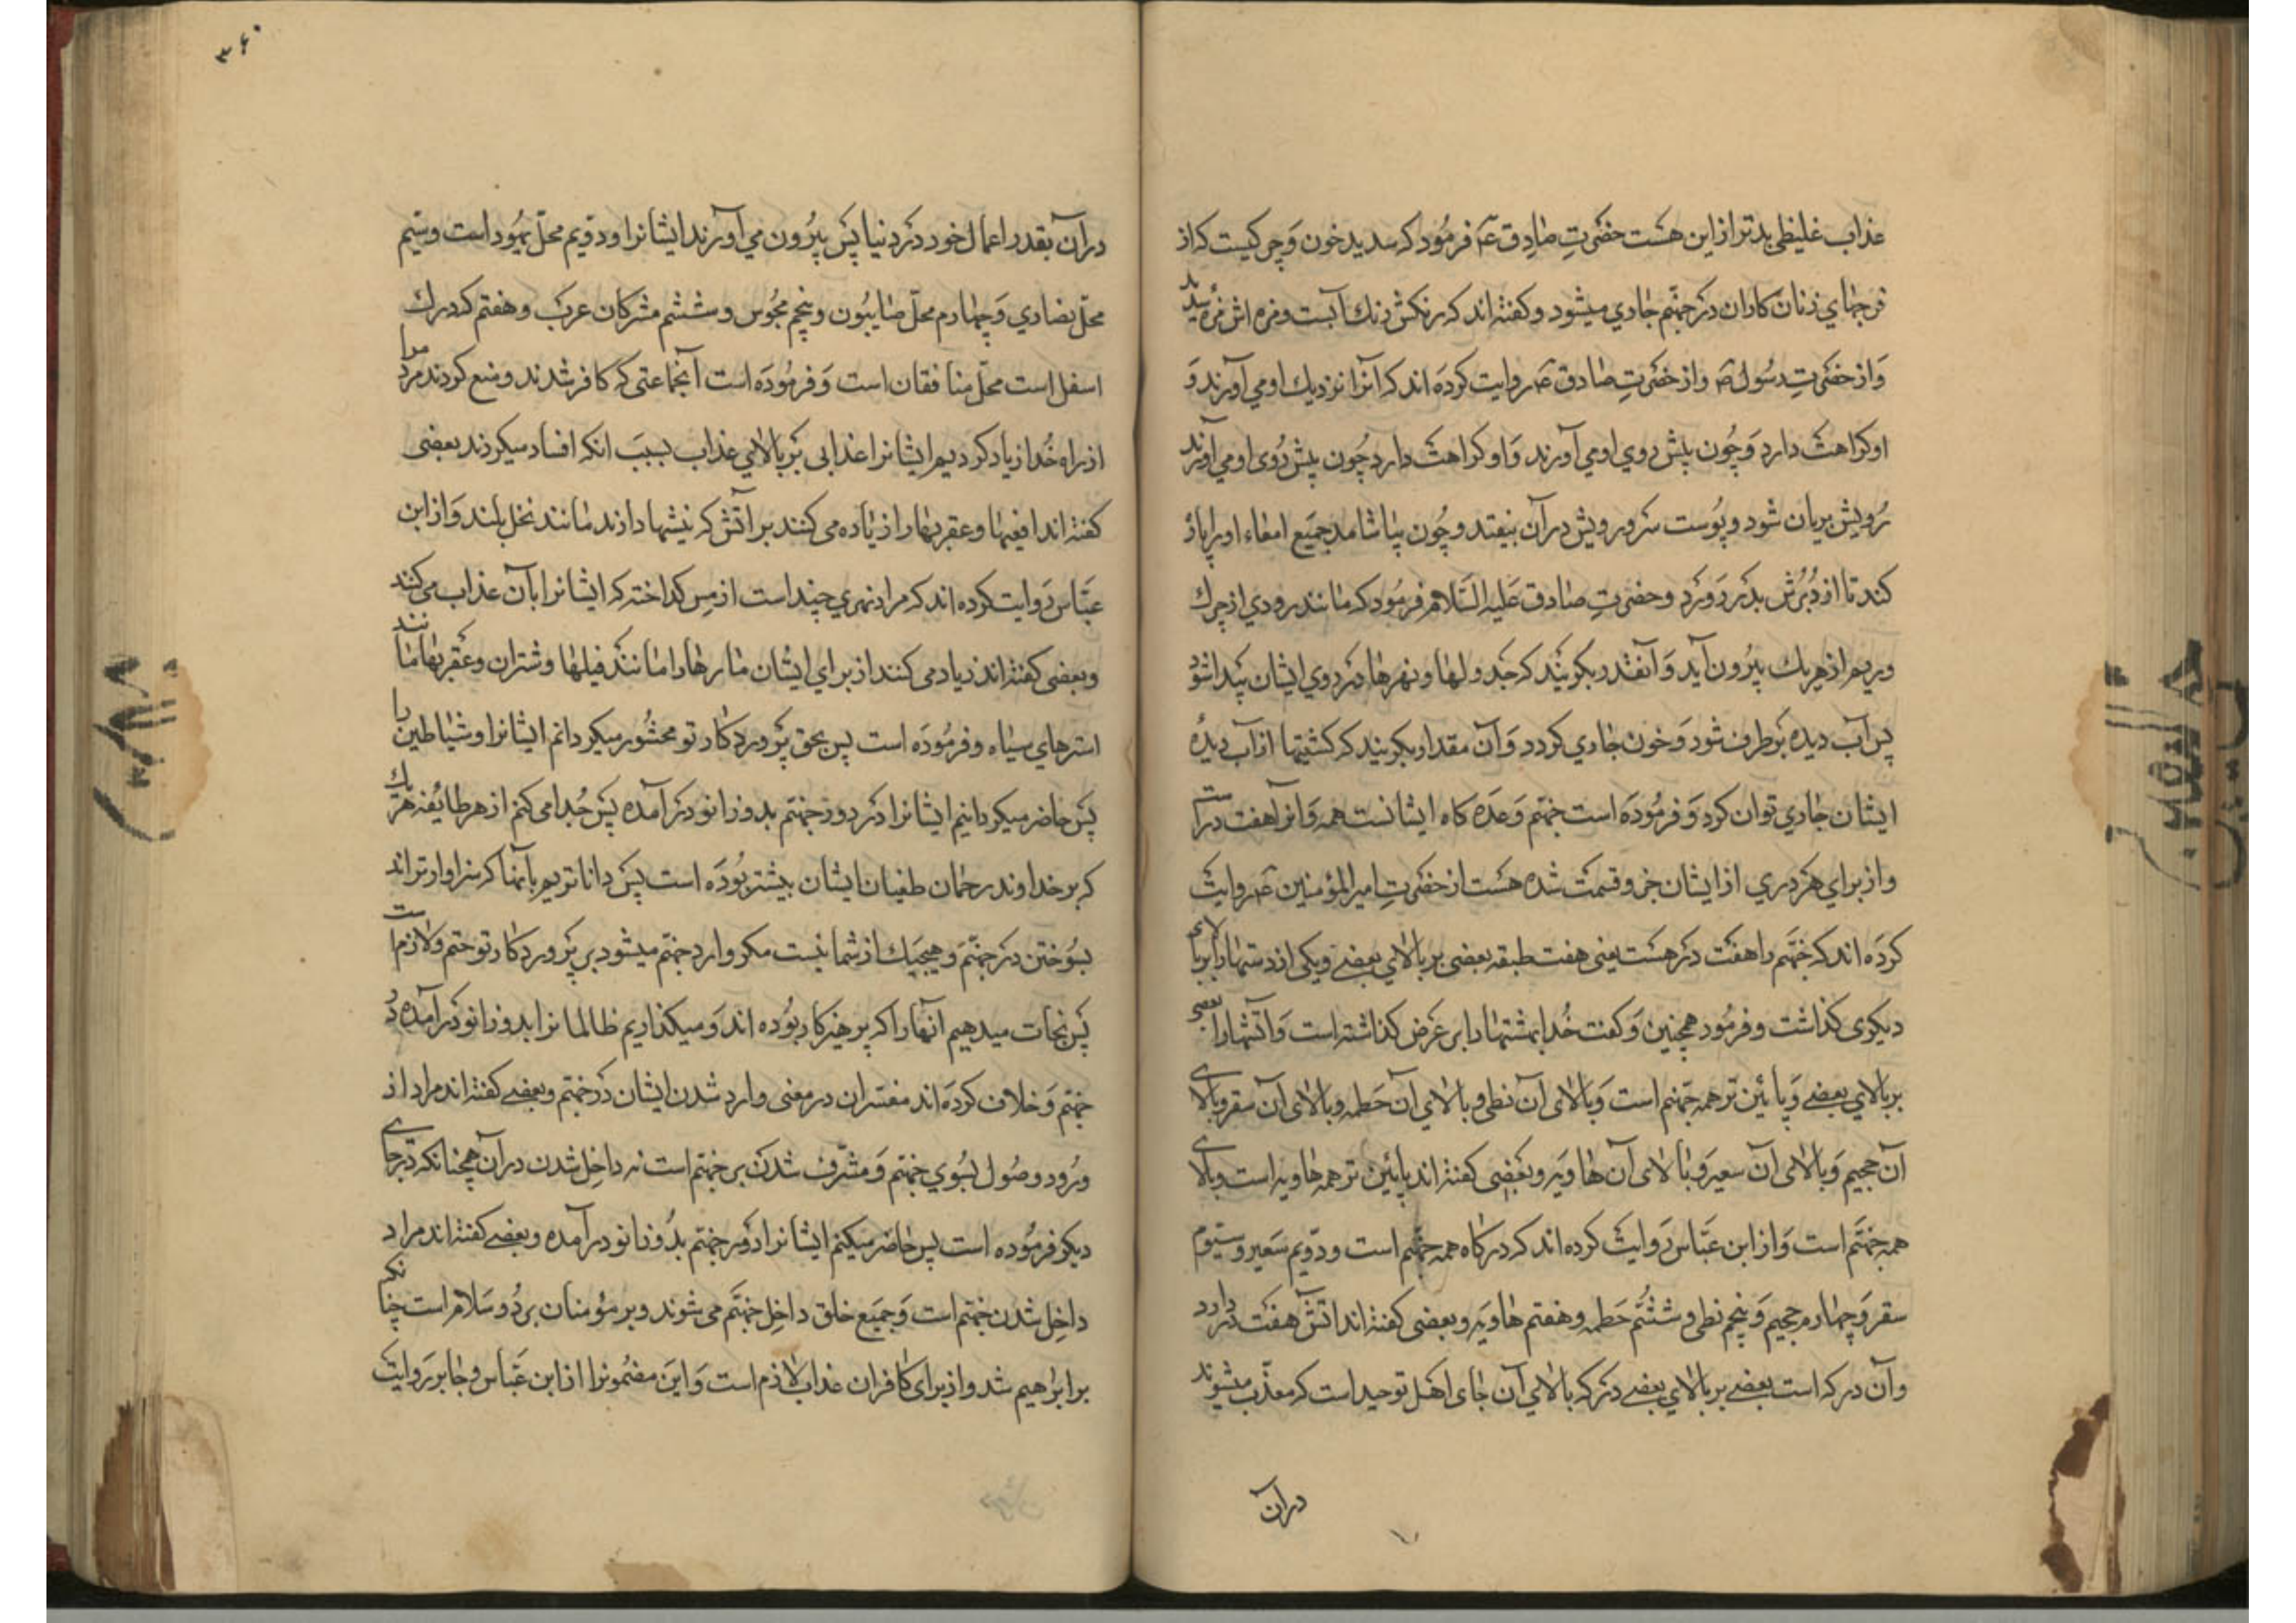 عذاب غلیظی بدتر از این هست حضرتِ صادق ع فرمود که صدید خون و چرکیست که از
فرجهای زنان کاران در جهنم جاری میشود و کفته اند که رنکش رنك آبست و مزه اش مزهٔ صدید
وَاز حضرتِ رسُول ص و از حضرتِ صادق ع روایت کرده اند که آنرا نزدیك او می آورند وَ
او کراهت دارد وَ چُون پیش روی او می آورند وَ او کراهت دارد چُون پیش رُوی او می آورند
رُویش بریان شود و پُوست سر و رویش در آن بیفتد و چُون بیاشامد جمیع امعاء او پاره پاره
کند تا از دُبُرش بدر رَوَد و حضرتِ صادق عَلیه السَّلام فرمُود که مانند رودی از چرك
و ریم از هریك بیرُون آید وَ آنقدر بکریند که جدولها و نهرها در روی ایشان پیدا شود
پس آب دیده برطرف شود وَ خون جاری کردد وَ آن مقدار بکریند که کشتیها از آب دیدهٔ
ایشان جاری توان کرد وَ فرمُودَه است جهنّم وَعدَه کاه ایشانست همه وَ آنرا هفت در است
و از برای هَر دری از ایشان جزو قسمت شده هست از حضرتِ امیر المؤمنین ع روایت
کردَه اند که جهنّم را هفت در هست یعنی هفت طبقه بعضی بر بالای بعضی و یکی از دستها را بر بالای
دیکری کذاشت و فرمُود همچنین وَ کفت خُدا بهشتها را بر عرض کذاشته است وَ آتشها را بعضی
بر بالای بعضی وَ پائین تر همه جهنّم است وَ بالای آن لظی و بالای آن حَطمه و بالای آن سقر و بالای
آن جحیم وَ بالای آن سعیر وَ بالای آن هاویَه و بعَضی کفته اند پایئین تر همه هاویه است و بالای
همه جهنّم است وَ از ابن عبّاس رَوایت کرده اند که درگاه همه جهنّم است و دوّیم سَعیر و سیّوم
سقر وَ چهارم جحیم وَ پنجم لظی و ششُم حَطمه و هفتم هاویَه و بعضی کفته اند آتش هفت در دارد
و آن درکه است بعضی بر بالای بعضی درکه بالای آن جای اهل توحید است که معذّب میشوند
در آن
۳۶۰
در آن بقدر اعمال خود در دنیا پس بیرُون می آورند ایشانرا و دوّیم محلّ یهُود است و سیّم
محلّ نصاری وَ چهارم محلّ صابیُون و پنجم مجُوس و ششم مشرکان عرَب و هفتم که درك
اسفل است محلّ منافقان است وَ فرمُودَه است آنجماعتی که کافر شدند و منع کردند مردم را
از راه خُدا زیاد کردیم ایشانرا عذابی بَر بالای عذاب بسبَب انکه افساد میکردند بعضی
کفته اند افعیها و عقربها را زیاده می کنند بر آتش که نیشها دارند مانند نخل بلند وَ از ابن
عبّاس رَوایت کرده اند که مراد نهری چند است از مِس کداخته که ایشانرا بآن عذاب می کنند
و بعضی کفته اند زیاد می کنند از برای ایشان مارها را مانند فیلها و شتران و عقربها مانند
استرهای سیاه و فرمُودَه است پس بحق پرَوردکار تو محشُور میکردانم ایشانرا و شیاطین را
پس حاضر میکردانیم ایشانرا در دور جهنّم بدو زانو درَ آمده پس جُدا می کنم از هر طایُفه هر یك
که بر خداوند رحمان طغیان ایشان بیشتر بُودَه است پس داناتریم بآنها که سزاوارتر اند
بسُوختن در جهنّم وَ هیچیك از شما نیست مکر وارد جهنّم میشود بر پرَوردکار تو حتم و لازم است
پس نجات میدهیم آنها را که پرهیزکار بُوده اند وَ میکذاریم ظالمانرا بدو زانو درَ آمده در
جهنّم وَ خلاف کردَه اند مفسّران در معنی وارد شدن ایشان در جهنّم و بعضی کفته اند مراد از
ورُود وصُول بسُوی جهنّم وَ مشرّف شدن بر جهنّم است نه داخِل شدن در آن همچنانکه در جای
دیکر فرمُوده است پس حاضر میکنم ایشانرا دَور جهنّم بدُو زانو در آمده و بعضی کفته اند مراد
داخِل شدن جهنّم است وَ جمیَع خلق داخِل جهنّم می شوند و بر مؤمنان برَد و سَلام است چنانکه
بر ابرَاهیم شد و از برای کافران عذاب لازم است وَ این مضمُونرا از ابن عَبّاس و جابر رَوایت